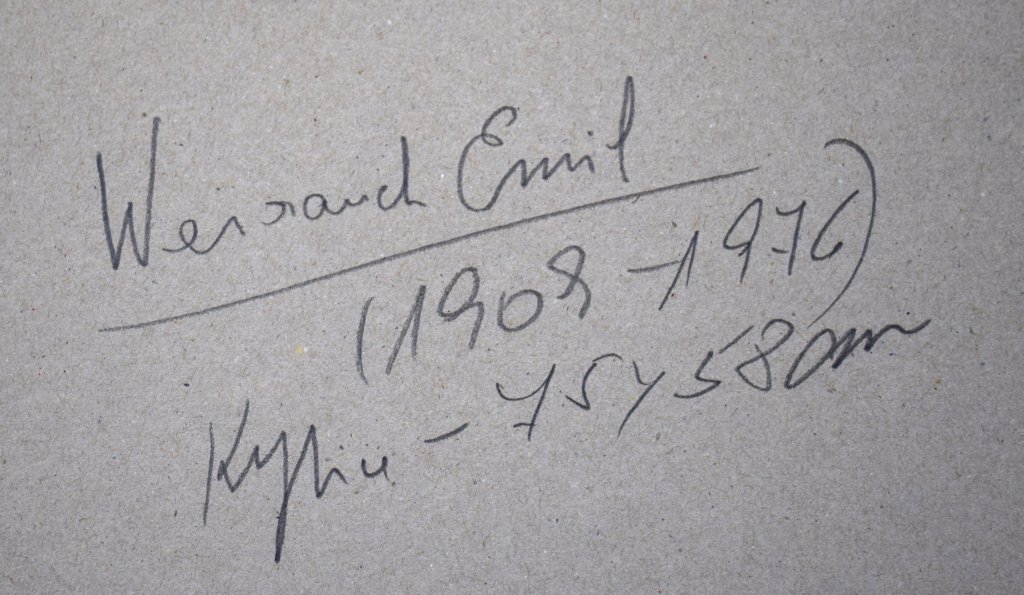 Weirauch Emil
(1909-1976)
Kytice - 75 x 58 cm